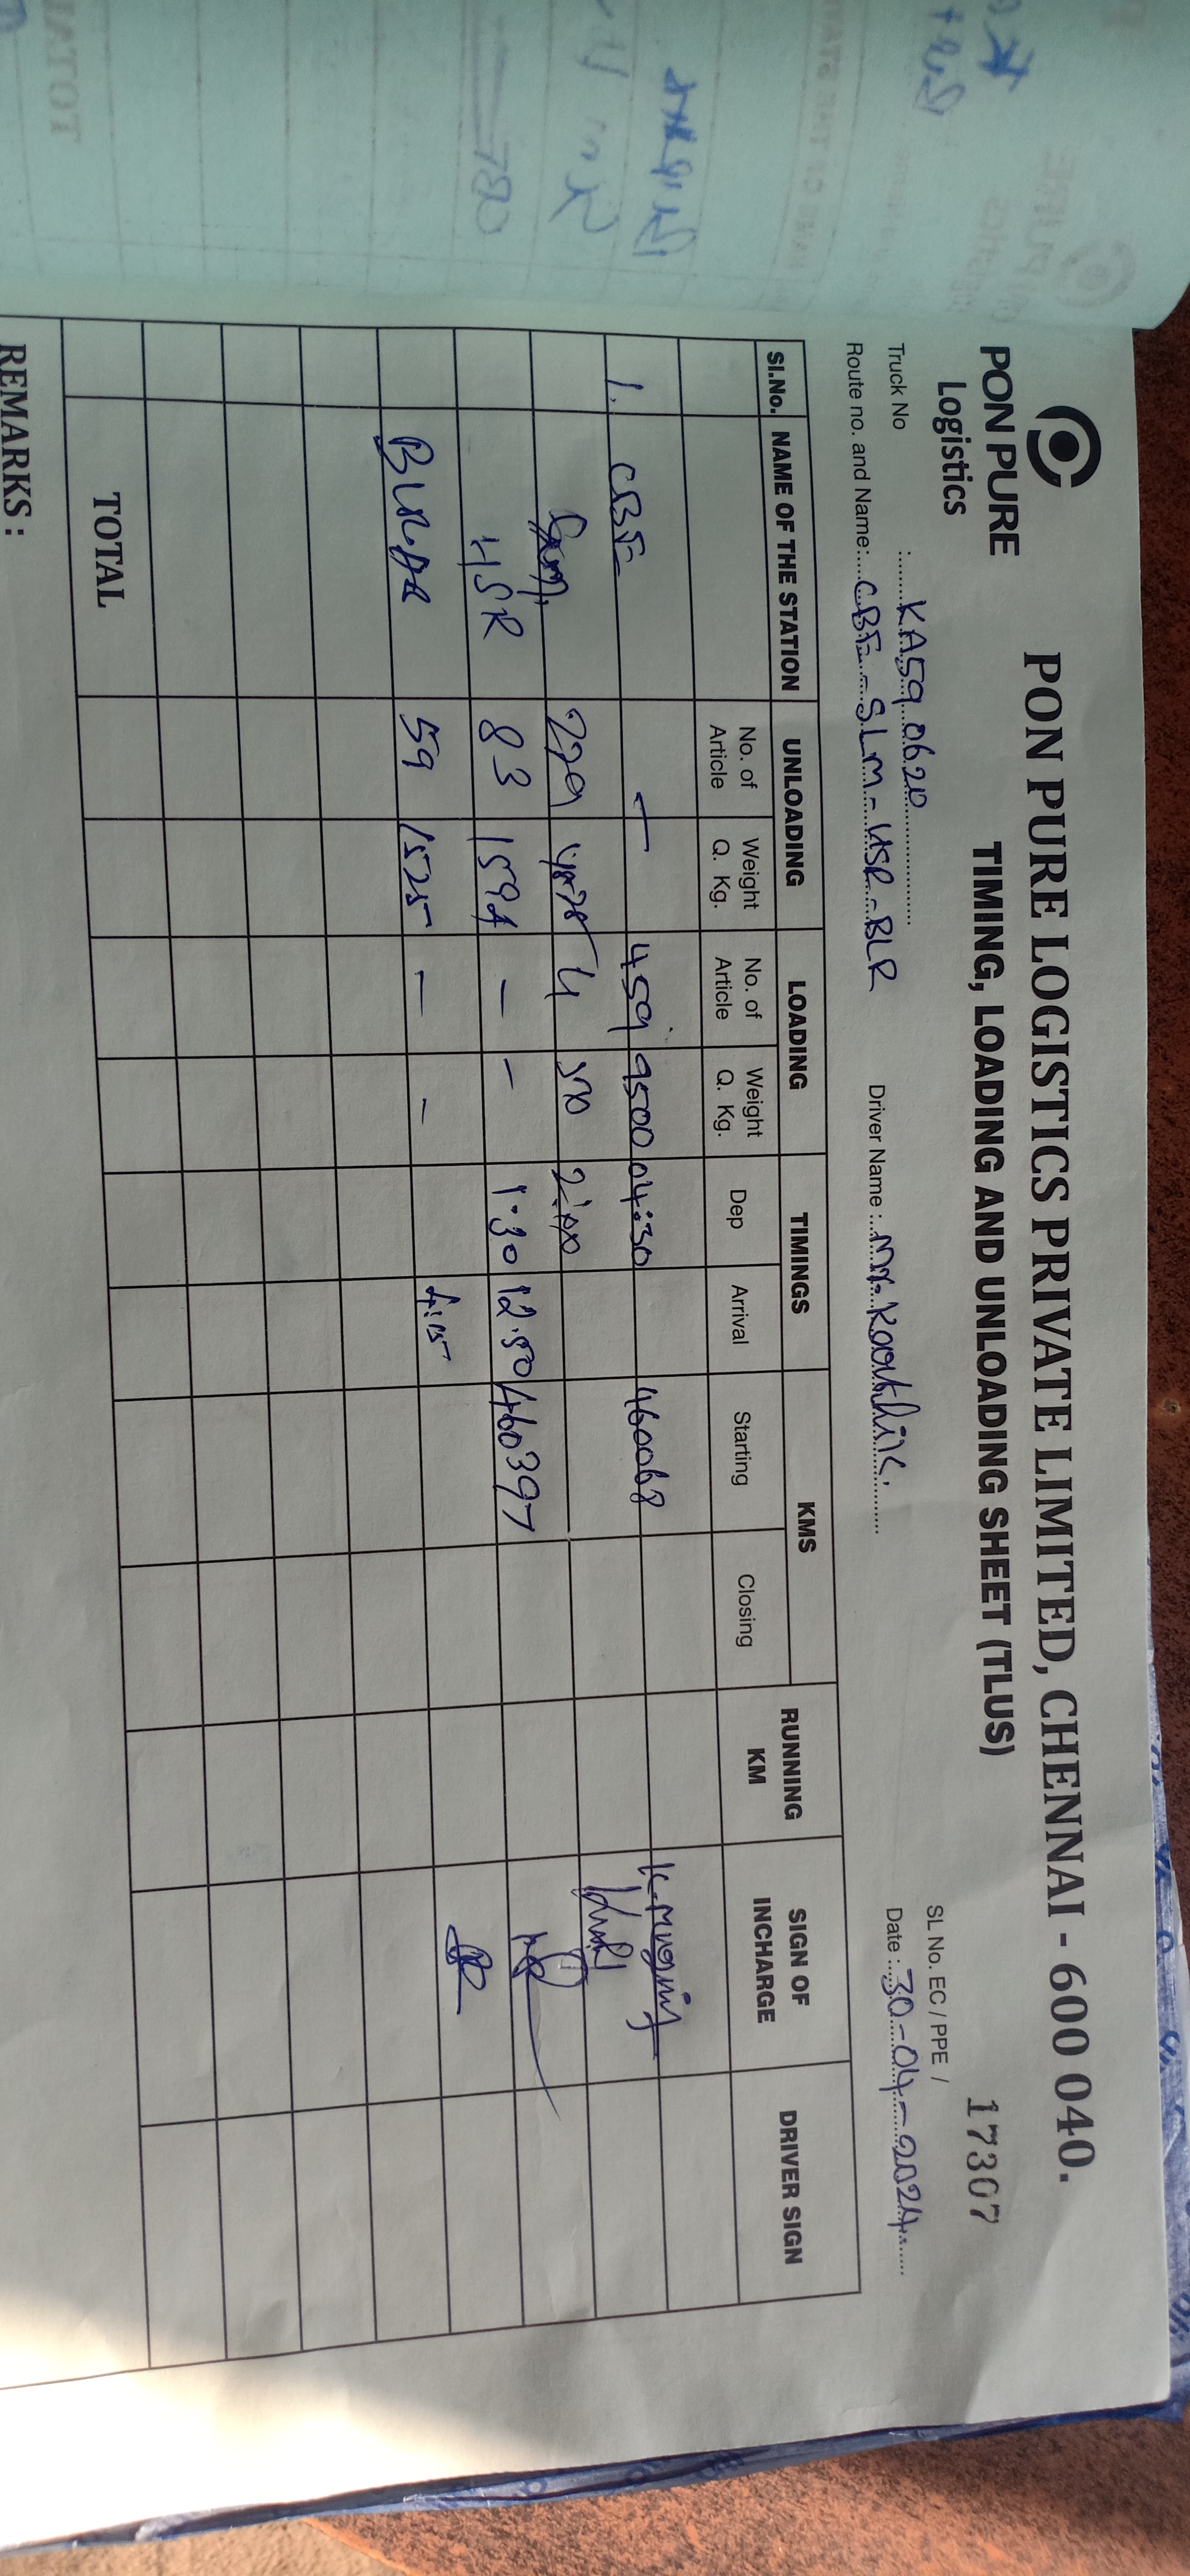 PON PURE LOGISTICS PRIVATE LIMITED, CHENNAI - 600 040.
PON PURE
Logistics
TIMING, LOADING AND UNLOADING SHEET (TLUS)
17307
SL No. EC / PPE /
Truck No : KA59 0620
Driver Name : Mr. Karthik.
Date : 30-04-2024
Route no. and Name: CBE - SLM - HSR - BLR
SI.No. NAME OF THE STATION UNLOADING LOADING TIMINGS KMS RUNNING KM SIGN OF INCHARGE DRIVER SIGN
No. of Article Weight Q. Kg. No. of Article Weight Q. Kg. Dep Arrival Starting Closing
1. CBE - 459 9500 04:30 460068
229 4 2:00
HSR 83 1594 - - 1.30 12.50 460397
59 1525 - - 4:15
TOTAL
REMARKS :
780